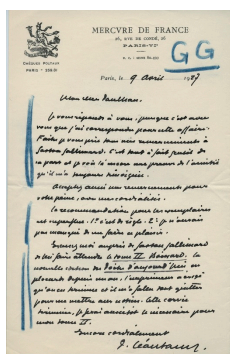 MERCVRE DE FRANCE
26, RVE DE CONDÉ, 26
PARIS-VIe
GG
CHÈQUES POSTAUX
PARIS - 259.31
Paris, le 9 Avril 1937
Mon cher Paulhan.
Je vous réponds à vous, puisque c'est avec
vous que j'ai correspondu pour cette affaire.
Faites je vous prie tous mes remerciements à
Gaston Gallimard. C'est tout à fait gentil de
sa part et je vois là encore une preuve de l'amitié
qu'il m'a toujours témoignée.
Acceptez aussi mes remerciements pour
votre peine, avec mes cordialités.
la recommandation pour les exemplaires
est superflue. 1° c'est de règle. 2° je n'aurais
pas manqué de me faire ce plaisir.
Excusez-moi auprès de Gaston Gallimard
de lui faire attendre le tome II Boissard. La
nouvelle édition des Poètes d'aujourd'hui en
plomb depuis un an, l'imprimeur a exigé
qu'on en termine et il m'a fallu tout quitter
pour me mettre aux notices. Cette corvée
terminée, je ferai aussitôt le nécessaire pour
mon tome II.
Encore cordialement
P. Léautaud